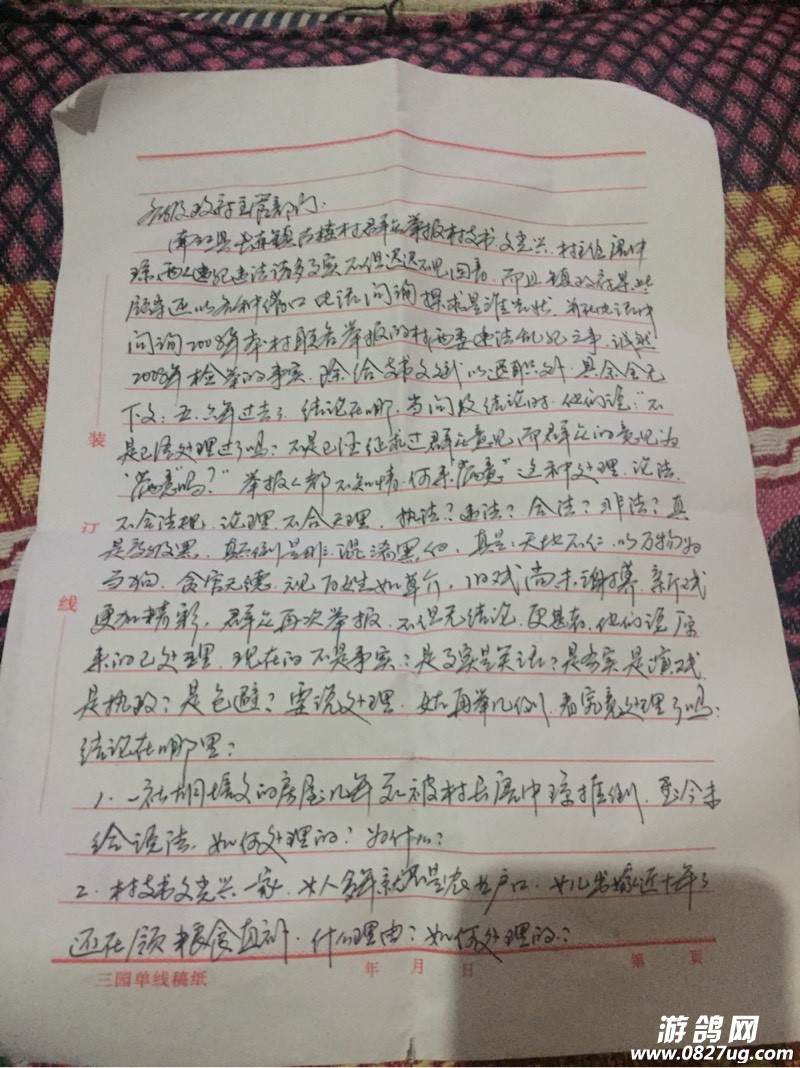 各级政府主管部门:
南江县长赤镇 村群众举报村支书文光兴、村主任 中
琼,两人违纪违法诸多事实不但迟迟不见回音,而且镇政府某些
领导还以各种借口电话问询探求是谁告状,并在电话中
问询2008年本村联名举报的村两委违法乱纪之事,诚然
2008年检举的事实,除给支书文 以退职外,其余全无
下文,五、六年过去了,结论在哪,当问及结论时,他们说:“不
是已经处理过了吗?不是已经征求过群众意见,而群众的意见为
“满意”吗?”举报人都不知情,何来“满意”,这种处理,论法,
不合法规,论理,不合天理,执法?违法?合法?非法?真
是 黑,颠倒是非,混淆黑白,真是:天地不仁,以万物为
刍狗,贪官无德,视百姓如草介,旧戏尚未谢幕,新戏
更加精彩,群众再次举报,不但无结论,更甚者,他们说原
来的已处理,现在的不是事实?是事实是笑话?是务实是演戏,
是执政?是包庇?要说处理,姑且再举几例,看究竟处理了吗?
结论在哪里?
1、一社胡 文的房屋几年 被村长 中琼推倒,至今未
给说法,如何处理的?为什么?
2、村支书文光兴一家, 人多年就不是农业户口,女儿出嫁近十年了
还在领粮食直补,什么理由?如何处理的?
装
订
线
三园单线稿纸 年 月 日 第 页
游鸽网
www.0827ug.com